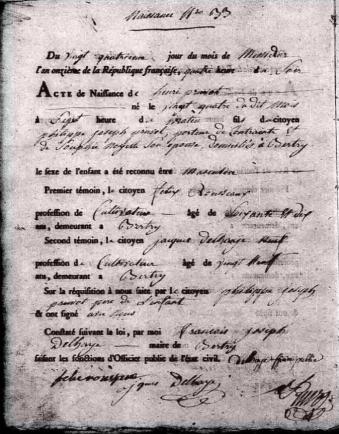 Naissance N.ro 33
Du vingt quatrieme jour du mois de Messidor
l'an onzième de la République française, quatre heure du Soir
ACTE de Naissance de henri
né le vingt quatre dudit mois
à Sept heure du matin fils de citoyen
philippe joseph porteur de contrainte et
de son épouse, domiciliés à Bertry
le sexe de l'enfant a été reconnu être masculin
Premier témoin, le citoyen felix Rousseaux
profession de Cultivateur âgé de Soixante et dix
ans, demeurant à Bertry
Second témoin, le citoyen jacques Delhaye
profession de Cultivateur âgé de vingt neuf
ans, demeurant à Bertry
Sur la réquisition à nous faite par le citoyen philippe joseph
pere de l'enfant
& ont signé avec nous
Constaté suivant la loi, par moi francois joseph
Delhaye maire de Bertry
faisant les fonctions d'Officier public de l'état civil.
jaques Delhaye